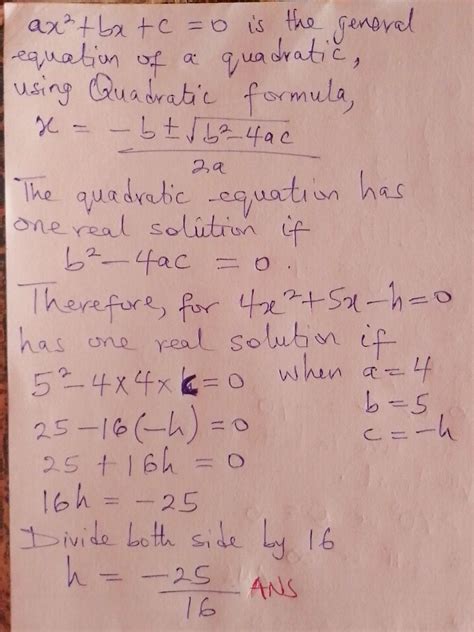 ax²+bx+c=0 is the general
equation of a quadratic,
using Quadratic formula,
x = -b±√b²-4ac
2a
The quadratic equation has
one real solution if
b²-4ac = 0.
Therefore, for 4x²+5x-h=0
has one real solution if
5²-4×4×c=0 when a=4
b=5
25-16(-h)=0 c=-h
25+16h=0
16h=-25
Divide both side by 16
h = -25 ANS
16